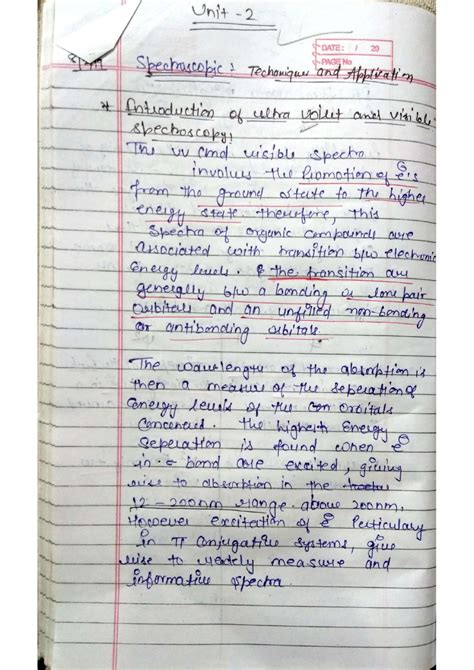 Unit - 2
DATE: / 20
PAGE No
Spectroscopic : Techanique and Application
* Introduction of ultra voilet and visible
spectroscopy:
The uv and visible spectra
involves the Promotion of e's
from the ground state to the higher
energy state therefore, this
spectra of organic compounds are
associated with transition b/w electronic
energy levels. & the transition are
generally b/w a bonding or lone pair
orbitals and an unfilled non-bonding
or antibonding orbitals.
The wavelength of the absorption is
then a measure of the seperation of
energy levels of the orbitals
concerned. The highest energy
seperation is found when e
in bond are excited, giving
rise to absorption in the
12 - 200nm range. above 200nm.
However excitation of e Perticulary
in π conjugative systems, give
rise to measure and
informative spectra.